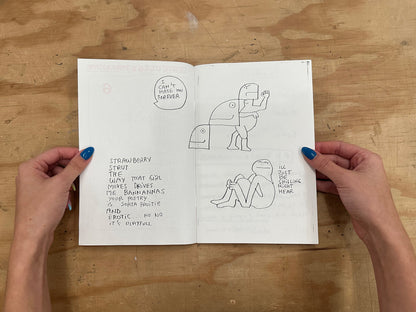 I
CAN'T
HATE YOU
FOREVER
STRAWBERRY
STRUT
THE
WAY THAT GAL
MAKES DRIVES
ME BANNANAS
YOUR POETRY
IS SORTA POLITIE
AND
EROTIC NO NO
IT'S PLAYFULL
ILL
JUST
BE
SMILING
RIGHT
HEAR